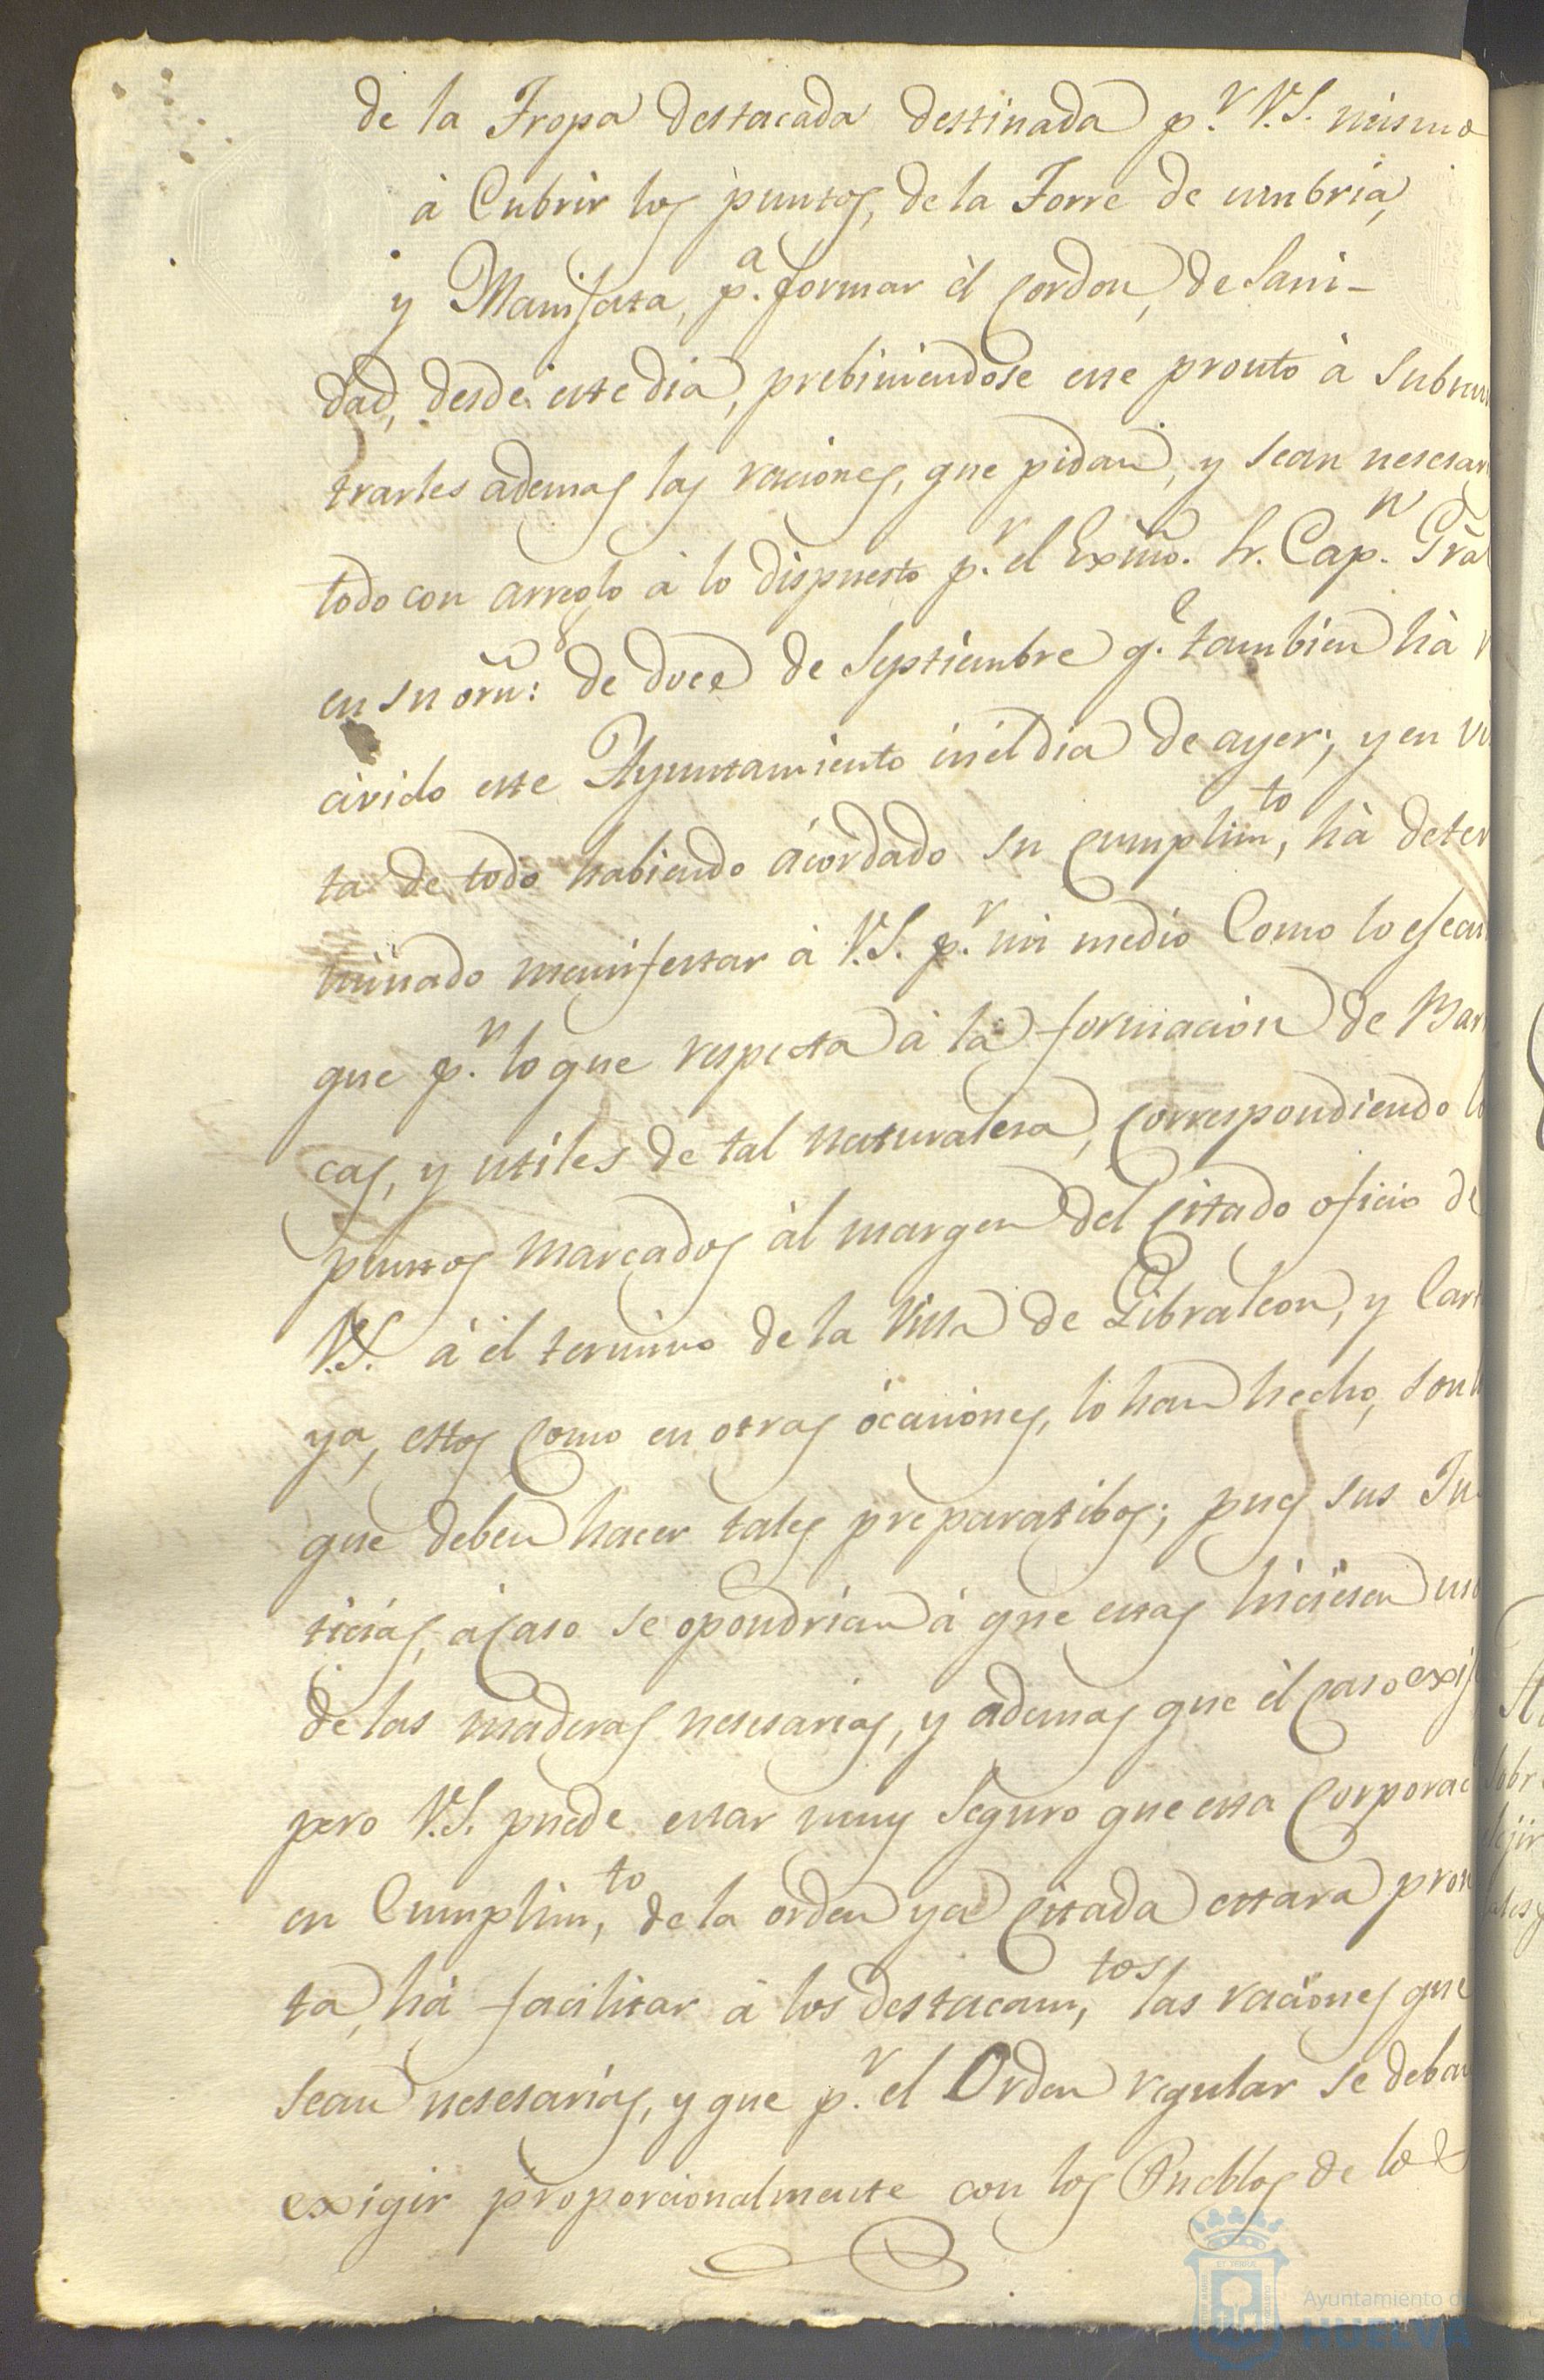 de la Tropa destacada destinada p.r V.S. mismo
à Cubrir los puntos, de la Torre de umbria,
y Manifata, p.a formar èl cordon, de Sani-
dad, desde este dia, prebiniendose este pronto à Subm
trarles ademas las raciones, que pidan, y sean nesesar
todo con arreglo à lo dispuesto p.r el Exmo. Sr. Cap.n Gral
en su orn: de doce de Septiembre q.e tambien hà r
civido este Ayuntamiento inèl dia de ayer; y en vis
ta de todo habiendo ácordado su cumplim,to hà deter
minado manifestar à V.S. p.r mi medio Como lo efecu
que p.r lo que respecta à la formacion de Bar
cas, y utiles de tal naturalesa, correspondiendo lo
puntos marcados àl margen del citado oficio de
V.S. à èl termino de la Villa de Gibraleon, y Cart
ya, estos como en otras òcasiones, lo han hecho, son l
que deben hacer tales preparatibos; pues sus Ju
ticias, àcaso se opondrian à que estas hiciesen uso
de las maderas nesesarias, y ademas que èl caso exij
pero V.S. puede estar muy Seguro que esta Corporaci
en Cumplim,to de la orden ya citada estara pron
ta, hà facilitar à los destacam,tos las raciones que
sean nesesarias, y que p.r el Orden regular se deban
exigir proporcionalmente con los Pueblos de lo
Ayuntamiento de
HUELVA